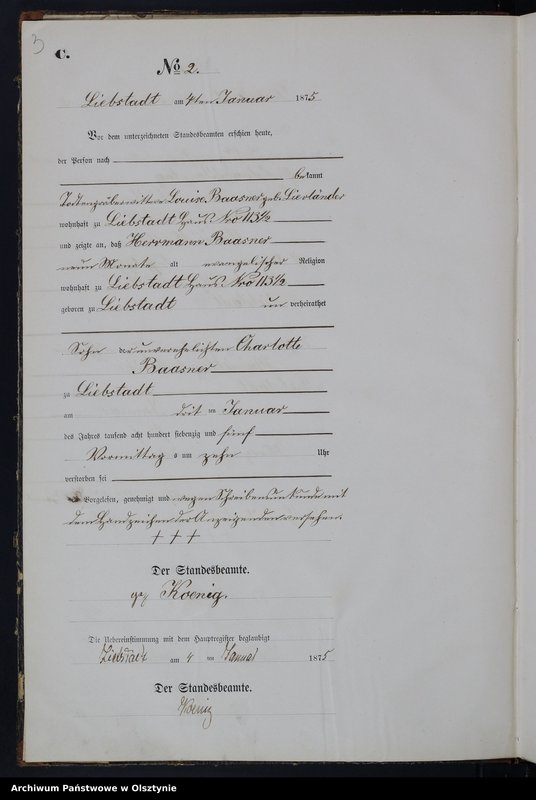 3
C.
No 2.
Liebstadt am 4ten Januar 1875
Vor dem unterzeichneten Standesbeamten erschien heute,
der Person nach
bekannt
Todtengräberwittwe Louise Baasner geb. Lierländer
wohnhaft zu Liebstadt Haus Nro 113½
und zeigte an, daß Herrmann Baasner
neun Monate alt evangelischer Religion
wohnhaft zu Liebstadt Haus Nro 113½
geboren zu Liebstadt un verheirathet
Sohn der unverehelichten Charlotte
Baasner
zu Liebstadt
am drit ten Januar
des Jahres tausend acht hundert siebenzig und fünf
Vormittag s um zehn Uhr
verstorben sei
Vorgelesen, genehmigt und wegen Schreibensunkunde mit
dem Handzeichen der Anzeigenden versehen.
+ + +
Der Standesbeamte.
gez Koenig.
Die Uebereinstimmung mit dem Hauptregister beglaubigt
Liebstadt am 4 ten Januar 1875
Der Standesbeamte.
Koenig
Archiwum Państwowe w Olsztynie